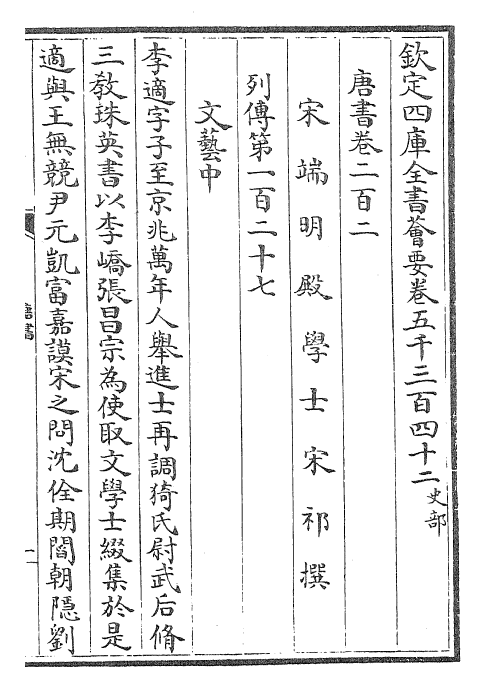 欽定四庫全書薈要卷五千三百四十二史部
唐書卷二百二
宋端明殿學士宋祁撰
列傳第一百二十七
文藝中
李適字子至京兆萬年人舉進士再調猗氏尉武后脩
三教珠英書以李嶠張昌宗為使取文學士綴集於是
適與王無競尹元凱富嘉謨宋之問沈佺期閻朝隱劉
唐書
一